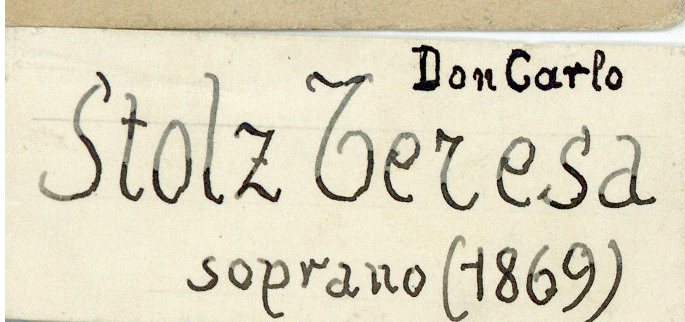 Don Carlo
Stolz Teresa
soprano (1869)